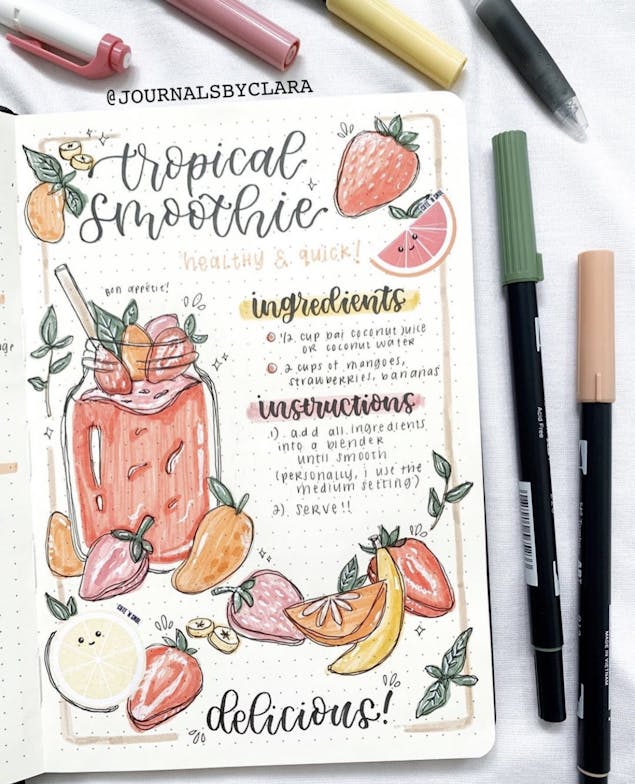 @JOURNALSBYCLARA
tropical
smoothie
healthy & quick!
bon appétit!
ingredients
1/2 cup bai coconut juice
or coconut water
2 cups of mangoes,
strawberries, bananas
insructions
1). add all ingredients
into a blender
until smooth
(personally, i use the
medium setting)
2). serve!!
delicious!
Acid Free
MADE IN VIETNAM